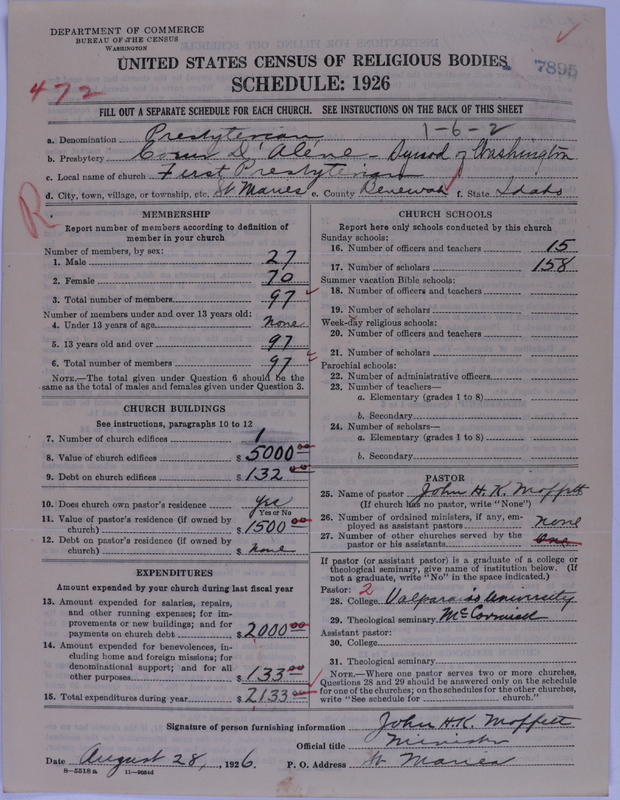 DEPARTMENT OF COMMERCE
BUREAU OF THE CENSUS
WASHINGTON
UNITED STATES CENSUS OF RELIGIOUS BODIES
SCHEDULE: 1926
7895
472
FILL OUT A SEPARATE SCHEDULE FOR EACH CHURCH. SEE INSTRUCTIONS ON THE BACK OF THIS SHEET
1-6-2
a. Denomination Presbyterian
b. Presbytery Coeur D'Alene - Synod of Washington
c. Local name of church First Presbyterian
d. City, town, village, or township, etc. St Maries e. County Benewah f. State Idaho
R
MEMBERSHIP
Report number of members according to definition of member in your church
Number of members, by sex:
1. Male 27
2. Female 70
3. Total number of members 97
Number of members under and over 13 years old:
4. Under 13 years of age None
5. 13 years old and over 97
6. Total number of members 97
NOTE.—The total given under Question 6 should be the
same as the total of males and females given under Question 3.
CHURCH BUILDINGS
See instructions, paragraphs 10 to 12
7. Number of church edifices 1
8. Value of church edifices $ 5000 00
9. Debt on church edifices $ 132 00
10. Does church own pastor's residence Yes
Yes or No
11. Value of pastor's residence (if owned by
church) $ 1500 00
12. Debt on pastor's residence (if owned by
church) $ None
EXPENDITURES
Amount expended by your church during last fiscal year
13. Amount expended for salaries, repairs,
and other running expenses; for im-
provements or new buildings; and for
payments on church debt $ 2000 00
14. Amount expended for benevolences, in-
cluding home and foreign missions; for
denominational support; and for all
other purposes $ 133 00
15. Total expenditures during year $ 2133 00
CHURCH SCHOOLS
Report here only schools conducted by this church
Sunday schools:
16. Number of officers and teachers 15
17. Number of scholars 158
Summer vacation Bible schools:
18. Number of officers and teachers
19. Number of scholars
Week-day religious schools:
20. Number of officers and teachers
21. Number of scholars
Parochial schools:
22. Number of administrative officers
23. Number of teachers—
a. Elementary (grades 1 to 8)
b. Secondary
24. Number of scholars—
a. Elementary (grades 1 to 8)
b. Secondary
PASTOR
25. Name of pastor John H. K. Moffett
(If church has no pastor, write "None")
26. Number of ordained ministers, if any, em-
ployed as assistant pastors none
27. Number of other churches served by the
pastor or his assistants one
If pastor (or assistant pastor) is a graduate of a college or
theological seminary, give name of institution below. (If
not a graduate, write "No" in the space indicated.)
Pastor: 2
28. College Valparaiso University
29. Theological seminary McCormick
Assistant pastor:
30. College
31. Theological seminary
NOTE.—Where one pastor serves two or more churches,
Questions 28 and 29 should be answered only on the schedule
for one of the churches; on the schedules for the other churches,
write "See schedule for church."
Signature of person furnishing information John H.K. Moffett
Official title Minister
Date August 28, 1926. P. O. Address St Maries
8-5518 a 11-9054d